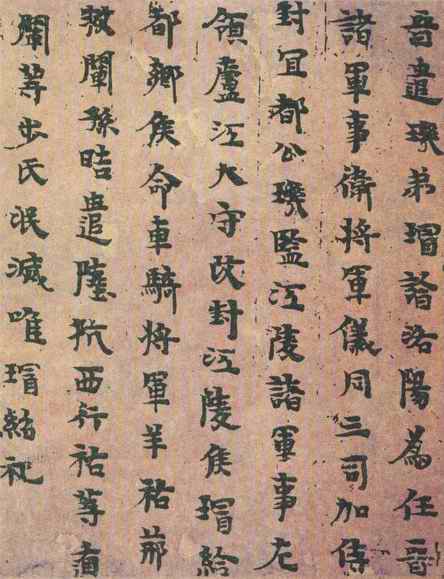 晉遣璣弟璿詣洛陽為任晉
諸軍事衛將軍儀同三司加侍
封宜都公璣監江陵諸軍事左
領盧江大守改封江陵侯璿給
都鄉侯命車騎將軍羊祜荊
救闡孫晧遣陸抗西行祜等遁
闡等步氏泯滅唯璿紹祀